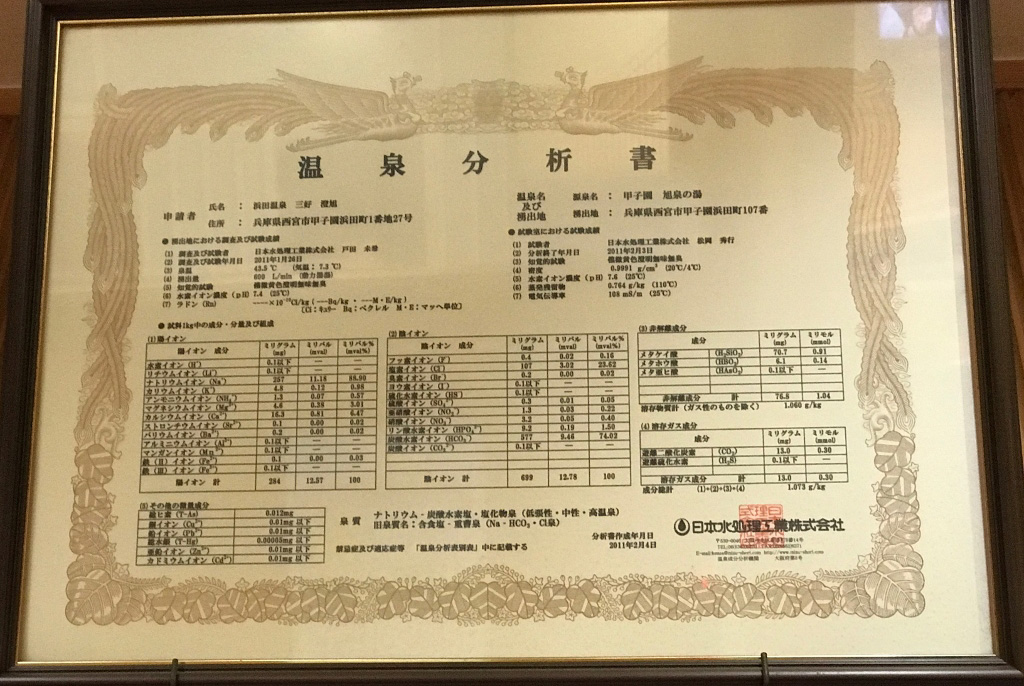 温泉分析書
申請者 氏名 ： 浜田温泉 三好 澄旭
住所 ： 兵庫県西宮市甲子園浜田町1番地27号
温泉名及び湧出地 源泉名 ： 甲子園 旭泉の湯
湧出地 ： 兵庫県西宮市甲子園浜田町107番
● 湧出地における調査及び試験成績
(1) 調査及び試験者 日本水処理工業株式会社 戸田
(2) 調査及び試験年月日 2011年1月26日
(3) 泉温 43.5 ℃ (気温： 7.3 ℃)
(4) 湧出量 600 L/min (動力揚湯)
(5) 知覚的試験 微微黄色澄明無味無臭
(6) 水素イオン濃度 (pH) 7.4 (25℃)
(7) ラドン (Rn)
[Ci：キュリー Bq：ベクレル M・E：マッヘ単位]
● 試験室における試験成績
(1) 試験者 日本水処理工業株式会社 松岡 秀行
(2) 分析終了年月日 2011年2月3日
(3) 知覚的試験 微微黄色澄明無味無臭
(4) 密度 0.9991 g/cm³ (20℃/4℃)
(5) 水素イオン濃度 (pH) 7.6 (25℃)
(6) 蒸発残留物 0.764 g/kg (110℃)
(7) 電気伝導率 108 mS/m (25℃)
● 試料1kg中の成分・分量及び組成
(1) 陽イオン
陽イオン 成分 ミリグラム (mg) ミリバル (mval) ミリバル% (mval%)
水素イオン (H⁺) 0.1以下 — —
リチウムイオン (Li⁺) 0.1以下 — —
ナトリウムイオン (Na⁺) 257 11.18 88.90
カリウムイオン (K⁺) 4.8 0.12 0.98
アンモニウムイオン (NH₄⁺) 1.3 0.07 0.57
マグネシウムイオン (Mg²⁺) 4.6 0.38 3.01
カルシウムイオン (Ca²⁺) 16.3 0.81 6.47
ストロンチウムイオン (Sr²⁺) 0.1 0.00 0.02
バリウムイオン (Ba²⁺) 0.2 0.00 0.02
アルミニウムイオン (Al³⁺) 0.1以下 — —
マンガンイオン 0.1以下 — —
鉄 (Ⅱ) イオン (Fe²⁺) 0.1 0.00 0.03
鉄 (Ⅲ) イオン (Fe³⁺) 0.1以下 — —
陽イオン 計 284 12.57 100
(2) 陰イオン
陰イオン 成分 ミリグラム (mg) ミリバル (mval) ミリバル% (mval%)
フッ素イオン (F⁻) 0.4 0.02 0.16
塩素イオン (Cl⁻) 107 3.02 23.62
臭素イオン (Br⁻) 0.2 0.00 0.02
ヨウ素イオン (I⁻) 0.1以下 — —
硫化水素イオン (HS⁻) 0.1以下 — —
硫酸イオン 0.3 0.01 0.05
亜硝酸イオン (NO₂⁻) 1.3 0.03 0.22
硝酸イオン (NO₃⁻) 3.2 0.05 0.40
リン酸水素イオン (HPO₄²⁻) 9.2 0.19 1.50
炭酸水素イオン (HCO₃⁻) 577 9.46 74.02
炭酸イオン (CO₃²⁻) 0.1以下 — —
陰イオン 計 699 12.78 100
(3) 非解離成分
成分 ミリグラム (mg) ミリモル (mmol)
メタケイ酸 (H₂SiO₃) 70.7 0.91
メタホウ酸 (HBO₂) 6.1 0.14
メタ亜ヒ酸 (HAsO₂) 0.1以下 —
非解離成分 計 76.8 1.04
溶存物質計 (ガス性のものを除く) 1.060 g/kg
(4) 溶存ガス成分
成分 ミリグラム (mg) ミリモル (mmol)
遊離二酸化炭素 (CO₂) 13.0 0.30
遊離硫化水素 (H₂S) 0.1以下 —
溶存ガス成分 計 13.0 0.30
成分総計 (1)+(2)+(3)+(4) 1.073 g/kg
(5) その他の微量成分
総ヒ素 (T-As) 0.012mg
銅イオン (Cu²⁺) 0.01mg 以下
鉛イオン (Pb²⁺) 0.01mg 以下
総水銀 (T-Hg) 0.00005mg 以下
亜鉛イオン (Zn²⁺) 0.01mg 以下
カドミウムイオン (Cd²⁺) 0.01mg 以下
泉質 ナトリウム－炭酸水素塩・塩化物泉 (低張性・中性・高温泉)
旧泉質名：含食塩－重曹泉 (Na－HCO₃・Cl泉)
禁忌症及び適応症等 「温泉分析表別表」中に記載する
分析書作成年月日
2011年2月4日
日本水処理工業株式会社